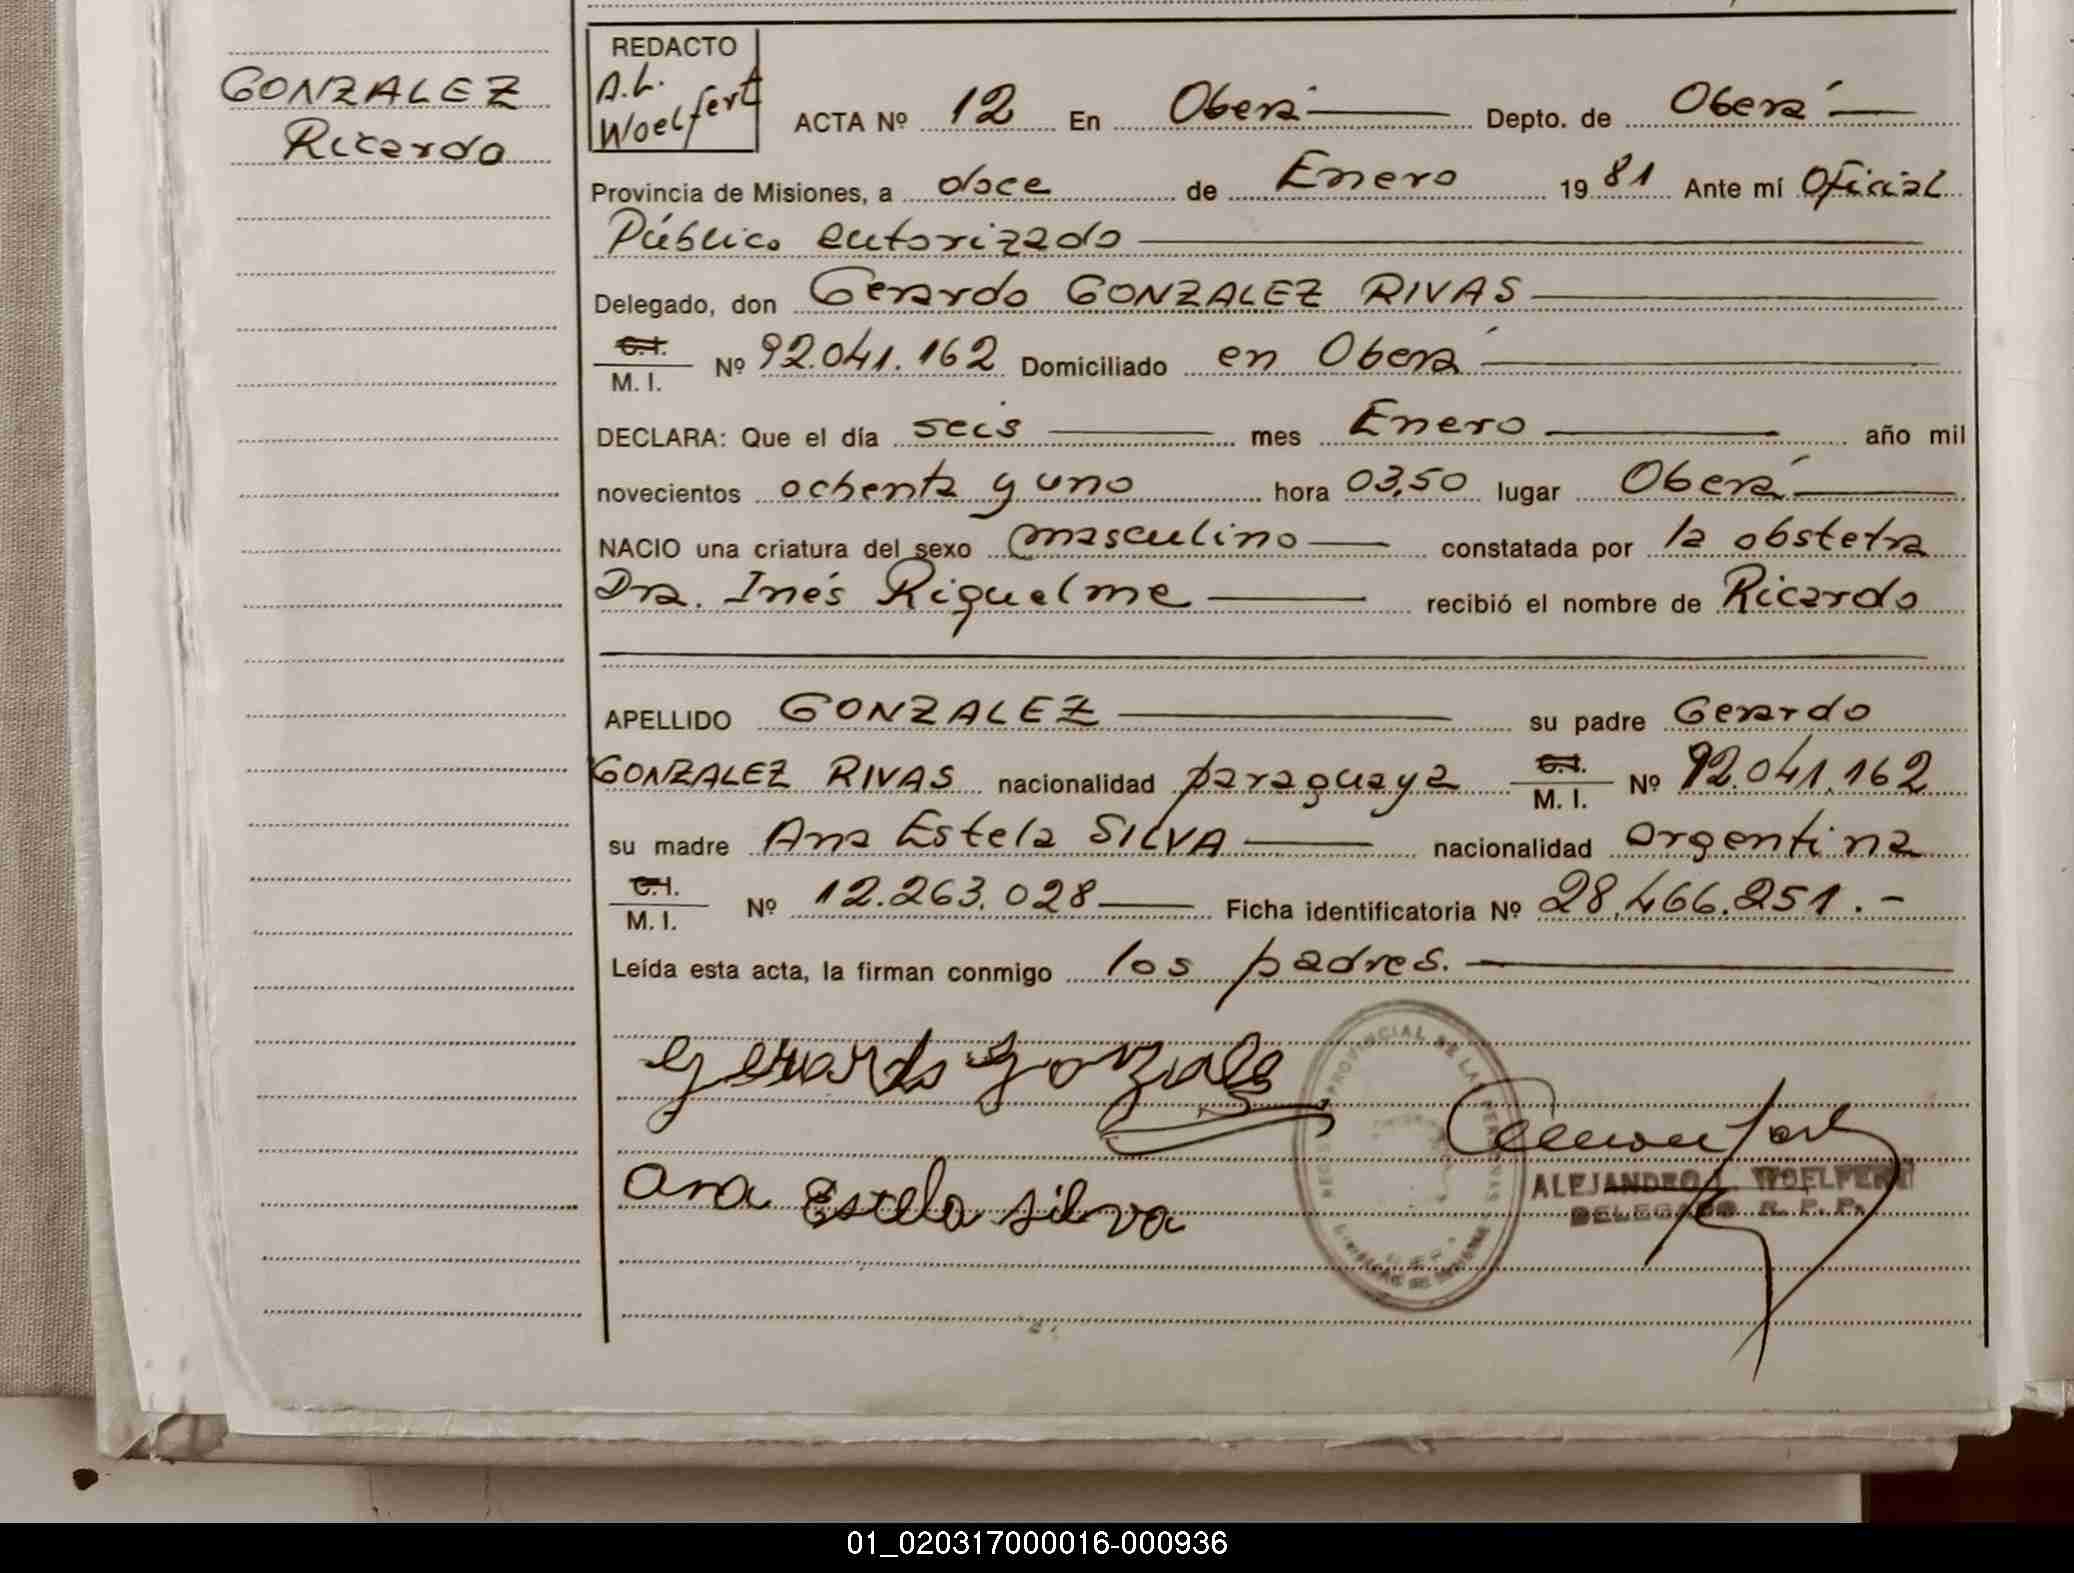 GONZALEZ
Ricardo
REDACTO
A.L.
Woelfert
ACTA Nº 12 En Oberá Depto. de Oberá
Provincia de Misiones, a doce de Enero 1981 Ante mí Oficial
Público autorizado
Delegado, don Gerardo GONZALEZ RIVAS
C.I.
M. I. Nº 92.041.162 Domiciliado en Oberá
DECLARA: Que el día seis mes Enero año mil
novecientos ochenta y uno hora 03,50 lugar Oberá
NACIO una criatura del sexo masculino constatada por la obstetra
Dra. Inés Riquelme recibió el nombre de Ricardo
APELLIDO GONZALEZ su padre Gerardo
GONZALEZ RIVAS nacionalidad paraguaya C.I. M. I. Nº 92.041.162
su madre Ana Estela SILVA nacionalidad argentina
C.I.
M. I. Nº 12.263.028 Ficha identificatoria Nº 28.466.251.-
Leída esta acta, la firman conmigo los padres.
Gerardo Gonzale
PROVINCIAL DE LAS PERSONAS
Ana Estela Silva
ALEJANDRO L. WOELFERT
DELEGADO R. P. P.
01_020317000016-000936